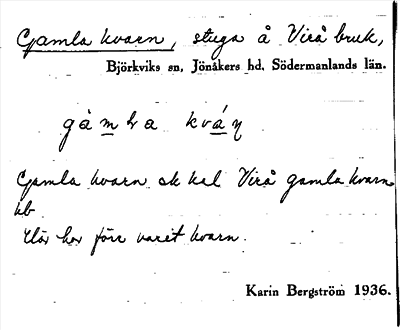 Gamla kvarn, stuga å Virå bruk,
Björkviks sn, Jönåkers hd, Södermanlands län.
Gamla kvarn Virå gamla kvarn
Här har förr varit kvarn.
Karin Bergström 1936.